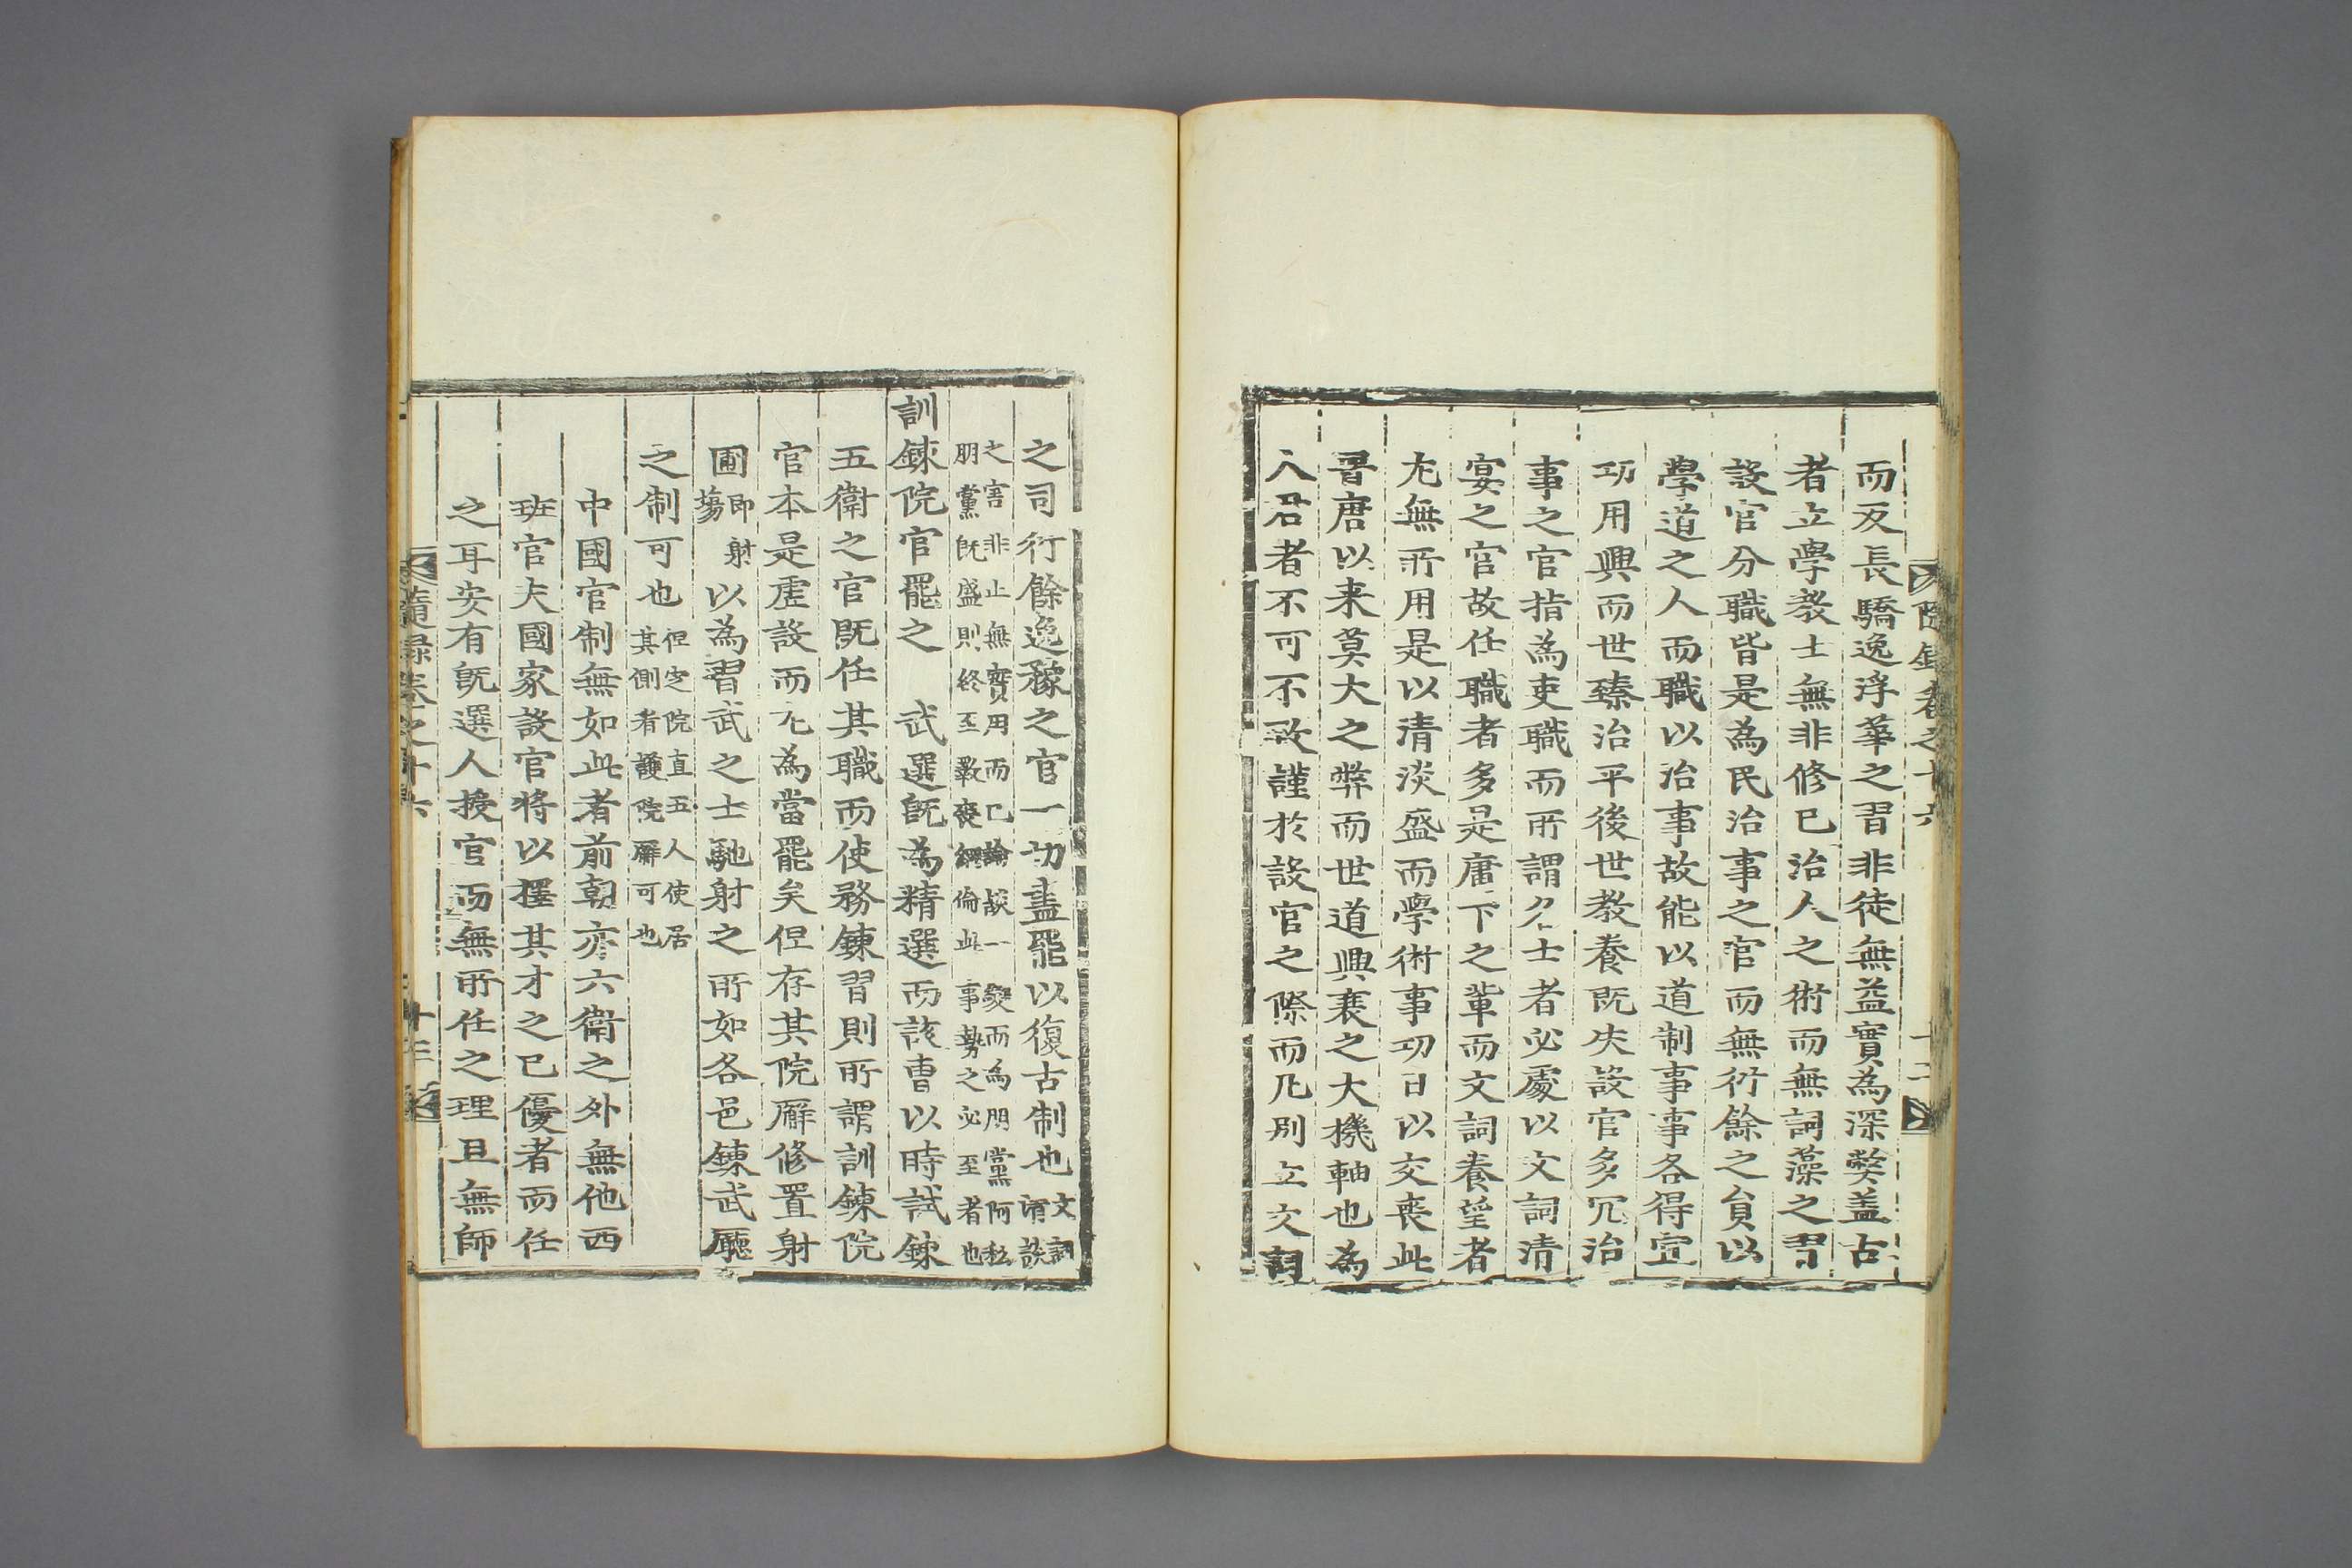 隨錄卷之十六 十二
而反長驕逸浮華之習非徒無益實為深獘盖古
者立學教士無非修已治人之術而無詞藻之習
設官分職皆是為民治事之官而無行餘之負以
學道之人而職以治事故能以道制事事各得宜
功用興而世臻治平後世教養旣失設官多冗治
事之官指為吏職而所謂名士者必處以文詞清
宴之官故任職者多是庸下之輩而文詞養望者
尢無所用是以清淡盛而學術事功日以交喪此
晋唐以来莫大之弊而世道興衰之大機軸也為
人君者不可不致謹於設官之際而凡別立文詞
之司行餘逸稼之官一切盡罷以復古制也文詞
謂談
之害非止無實用而已論議一變而為朋黨阿私
朋黨旣盛則終至斁喪綱倫此事勢之必至者也
訓鍊院官罷之 武選旣為精選而該曹以時試鍊
五衛之官旣任其職而使務鍊習則所謂訓鍊院
官本是虛設而尢為當罷矣但存其院廨修置射
圃即射
塲以為習武之士馳射之所如各邑鍊武廳
之制可也但定院直五人使居
其側看護院廨可也
中國官制無如此者前朝亦六衛之外無他西
班官夫國家設官將以擇其才之已優者而任
之耳安有旣選人授官而無所任之理且無師
隨錄卷之十六 十三